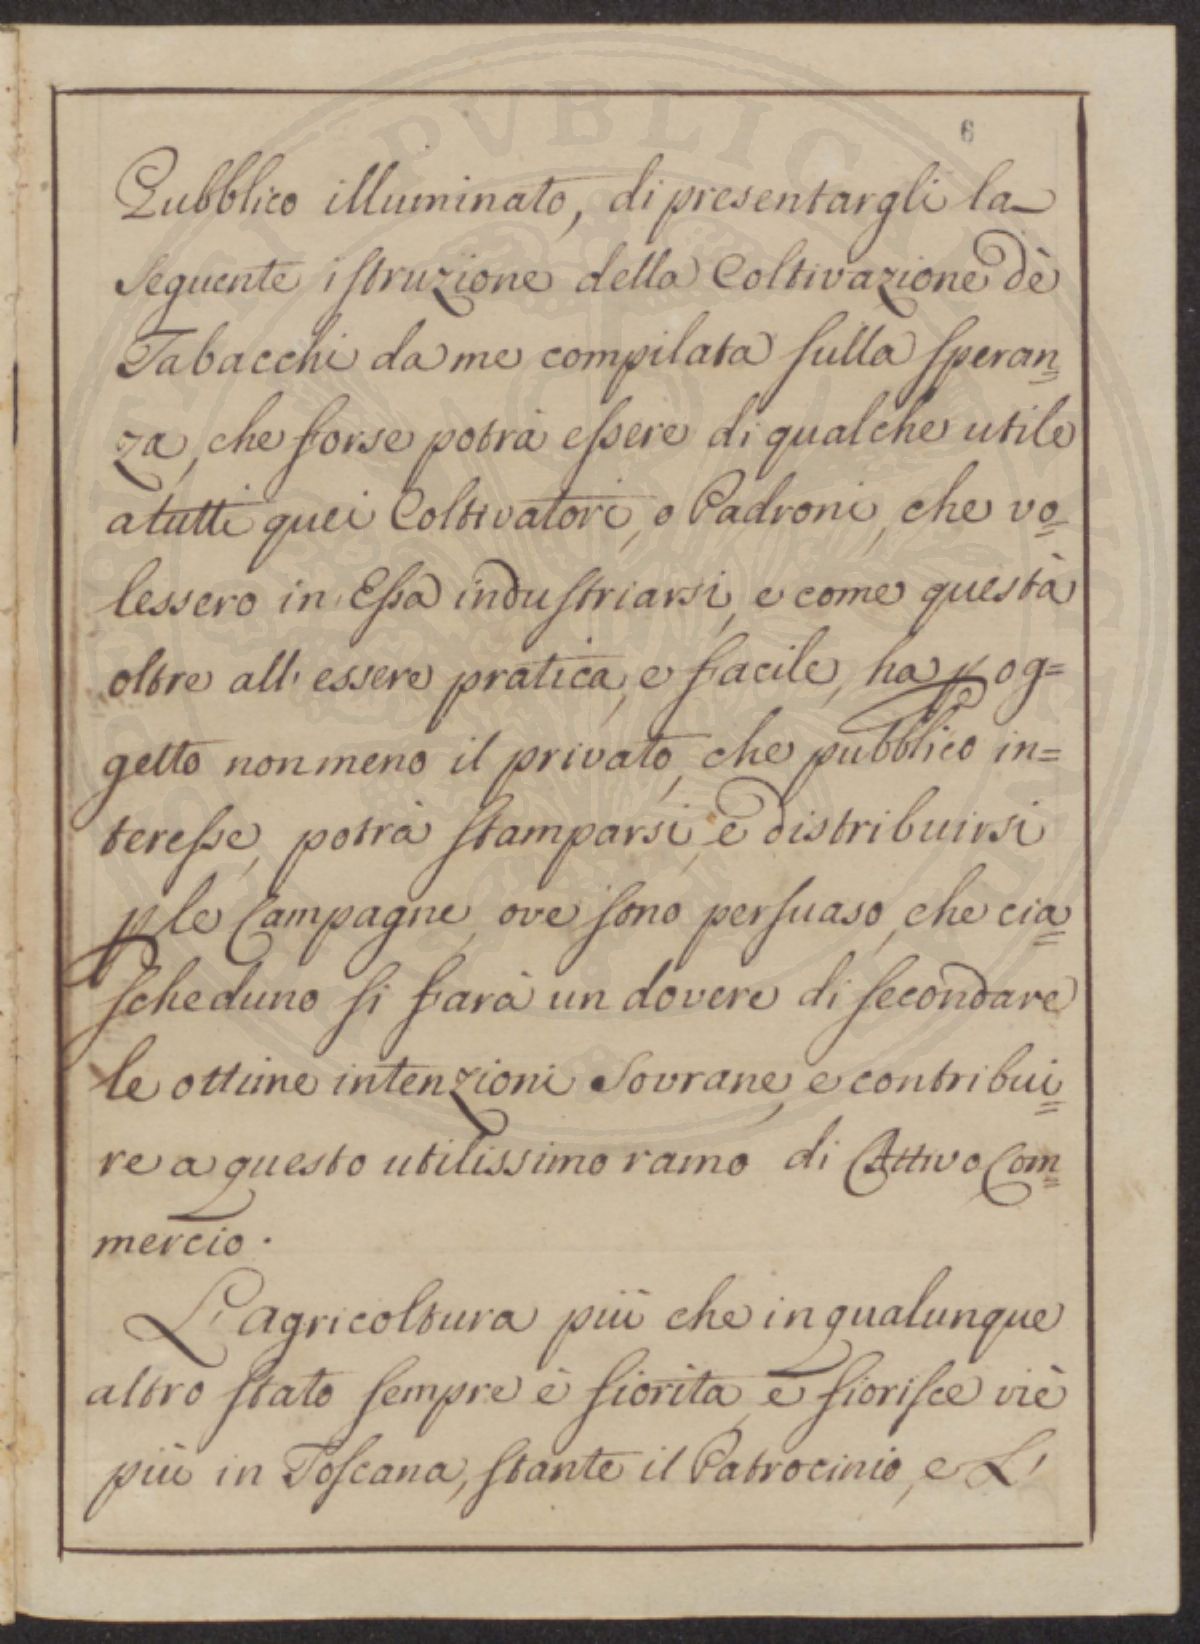 6
Pubblico illuminato, di presentargli la
seguente istruzione della Coltivazione dè
Tabacchi da me compilata sulla speran=
za, che forse potrà essere di qualche utile
a tutti quei Coltivatori, o Padroni, che vo=
lessero in Essa industriarsi, e come questa
oltre all'essere pratica, e facile, ha p og=
getto non meno il privato, che pubblico in=
teresse, potrà stamparsi, e distribuirsi
p le Campagne, ove sono persuaso, che cia=
scheduno si farà un dovere di secondare
le ottime intenzioni Sovrane, e contribui=
re a questo utilissimo ramo di Attivo Com=
mercio.
L'agricoltura più che in qualunque
altro stato sempre è fiorita, e fiorisce viè
più in Toscana, stante il Patrocinio, e L'